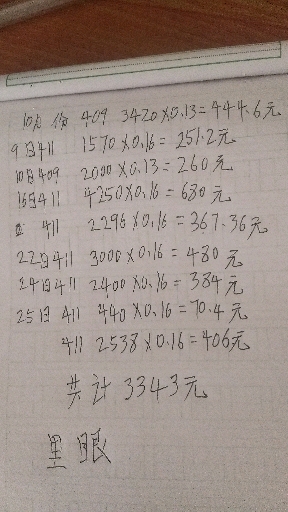 10月份 409 3420×0.13=444.6元
9日411 1570×0.16=251.2元
10日409 2000×0.13=260元
16日411 4250×0.16=680元
411 2296×0.16=367.36元
22日411 3000×0.16=480元
24日411 2400×0.16=384元
25日411 440×0.16=70.4元
411 2538×0.16=406元
共计3343元
黑眼